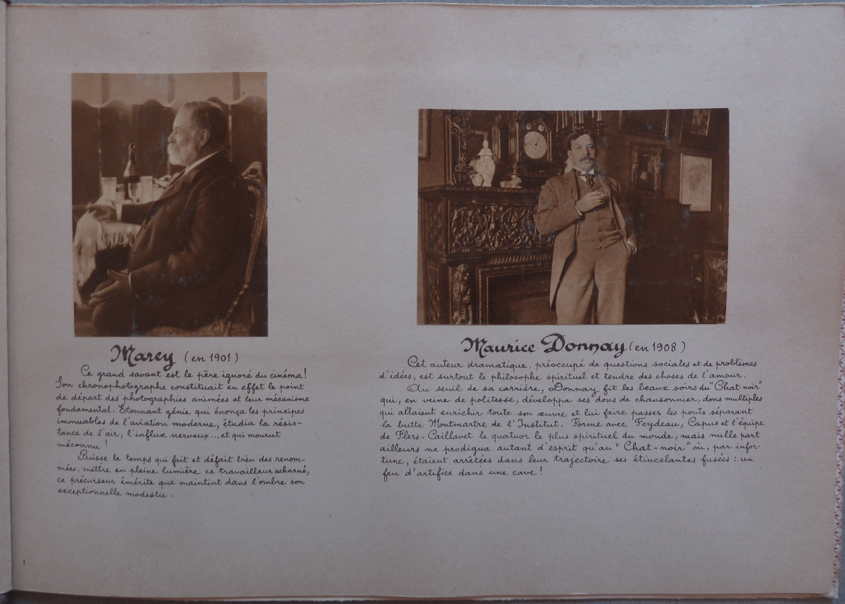 Marey (en 1901)
Ce grand savant est le père ignoré du cinéma!
Son chronophotographe constituait en effet le point
de départ des photographies animées et leur mécanisme
fondamental. Etonnant génie qui énonça les principes
immuables de l'aviation moderne, étudia la résis-
tance de l'air, l'influx nerveux... et qui mourut
méconnu!
Puisse le temps qui fait et défait bien des renom-
mées, mettre en pleine lumière, ce travailleur acharné,
ce précurseur émérite que maintint dans l'ombre son
exceptionnelle modestie.
Maurice Donnay (en 1908)
Cet auteur dramatique, préoccupé de questions sociales et de problèmes
d'idées, est surtout le philosophe spirituel et tendre des choses de l'amour.
Au seuil de sa carrière, Donnay fit les beaux soirs du "Chat-noir"
qui, en veine de politesse, développa ses dons de chansonnier, dons multiples
qui allaient enrichir toute son œuvre et lui faire passer les ponts séparant
la butte Montmartre de l'Institut. Forme avec Feydeau, Capus et l'équipe
de Flers-Caillavet le quatuor le plus spirituel du monde, mais nulle part
ailleurs ne prodigua autant d'esprit qu'au "Chat-noir" où, par infor-
tune, étaient arrêtées dans leur trajectoire ses étincelantes fusées: un
feu d'artifice dans une cave!